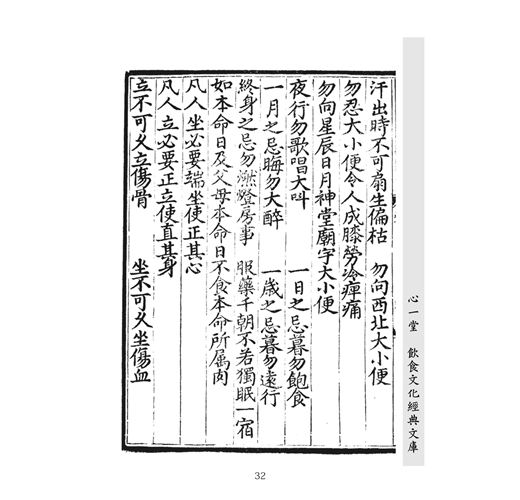 汗出時不可扇生偏枯　勿向西北大小便
勿忍大小便令人成膝勞冷痺痛
勿向星辰日月神堂廟宇大小便
夜行勿歌唱大叫　一日之忌暮勿飽食
一月之忌晦勿大醉　一歲之忌暮勿遠行
終身之忌勿燃燈房事　服藥千朝不若獨眠一宿
如本命日及父母本命日不食本命所属肉
凡人坐必要端坐使正其心
凡人立必要正立使直其身
立不可久立傷骨　坐不可久坐傷血
心一堂　飲食文化經典文庫
32